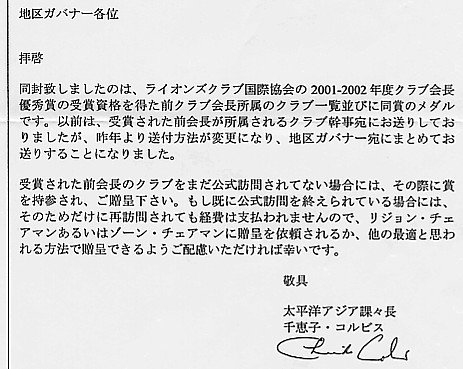 地区ガバナー各位
拝啓
同封致しましたのは、ライオンズクラブ国際協会の 2001-2002 年度クラブ会長
優秀賞の受賞資格を得た前クラブ会長所属のクラブ一覧並びに同賞のメダル
です。以前は、受賞された前会長が所属されるクラブ幹事宛にお送りしてお
りましたが、昨年より送付方法が変更になり、地区ガバナー宛にまとめてお
送りすることになりました。
受賞された前会長のクラブをまだ公式訪問されてない場合には、その際に賞
を持参され、ご贈呈下さい。もし既に公式訪問を終えられている場合には、
そのためだけに再訪問されても経費は支払われませんので、リジョン・チェ
アマンあるいはゾーン・チェアマンに贈呈を依頼されるか、他の最適と思わ
れる方法で贈呈できるようご配慮いただければ幸いです。
敬具
太平洋アジア課々長
千恵子・コルビス